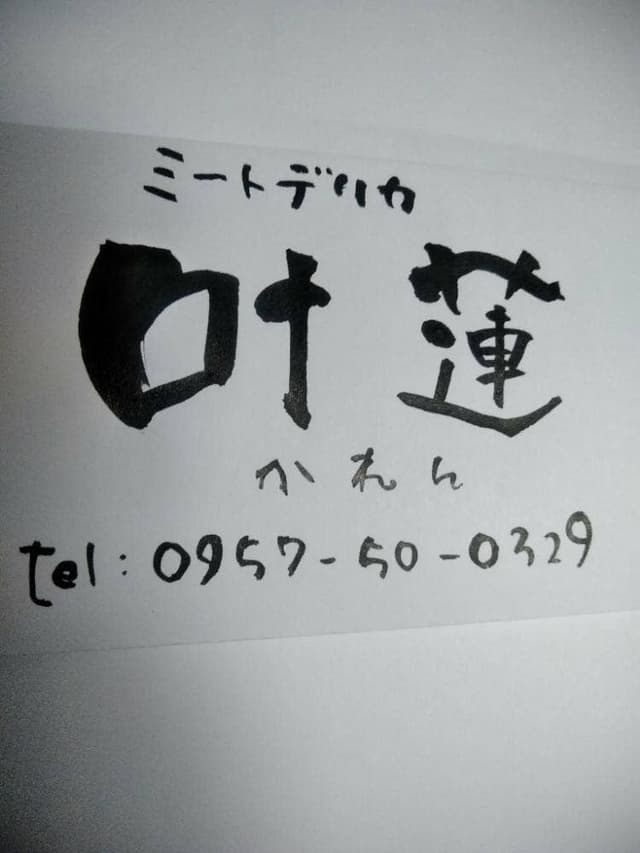 ミートデリカ
叶蓮
かれん
tel: 0957-50-0329